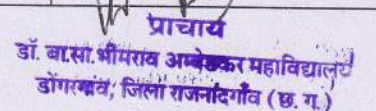 प्राचार्य
डॉ. बा.सा. भीमराव अम्बेडकर महाविद्यालय
डोंगरगांव, जिला राजनांदगाँव (छ. ग.)